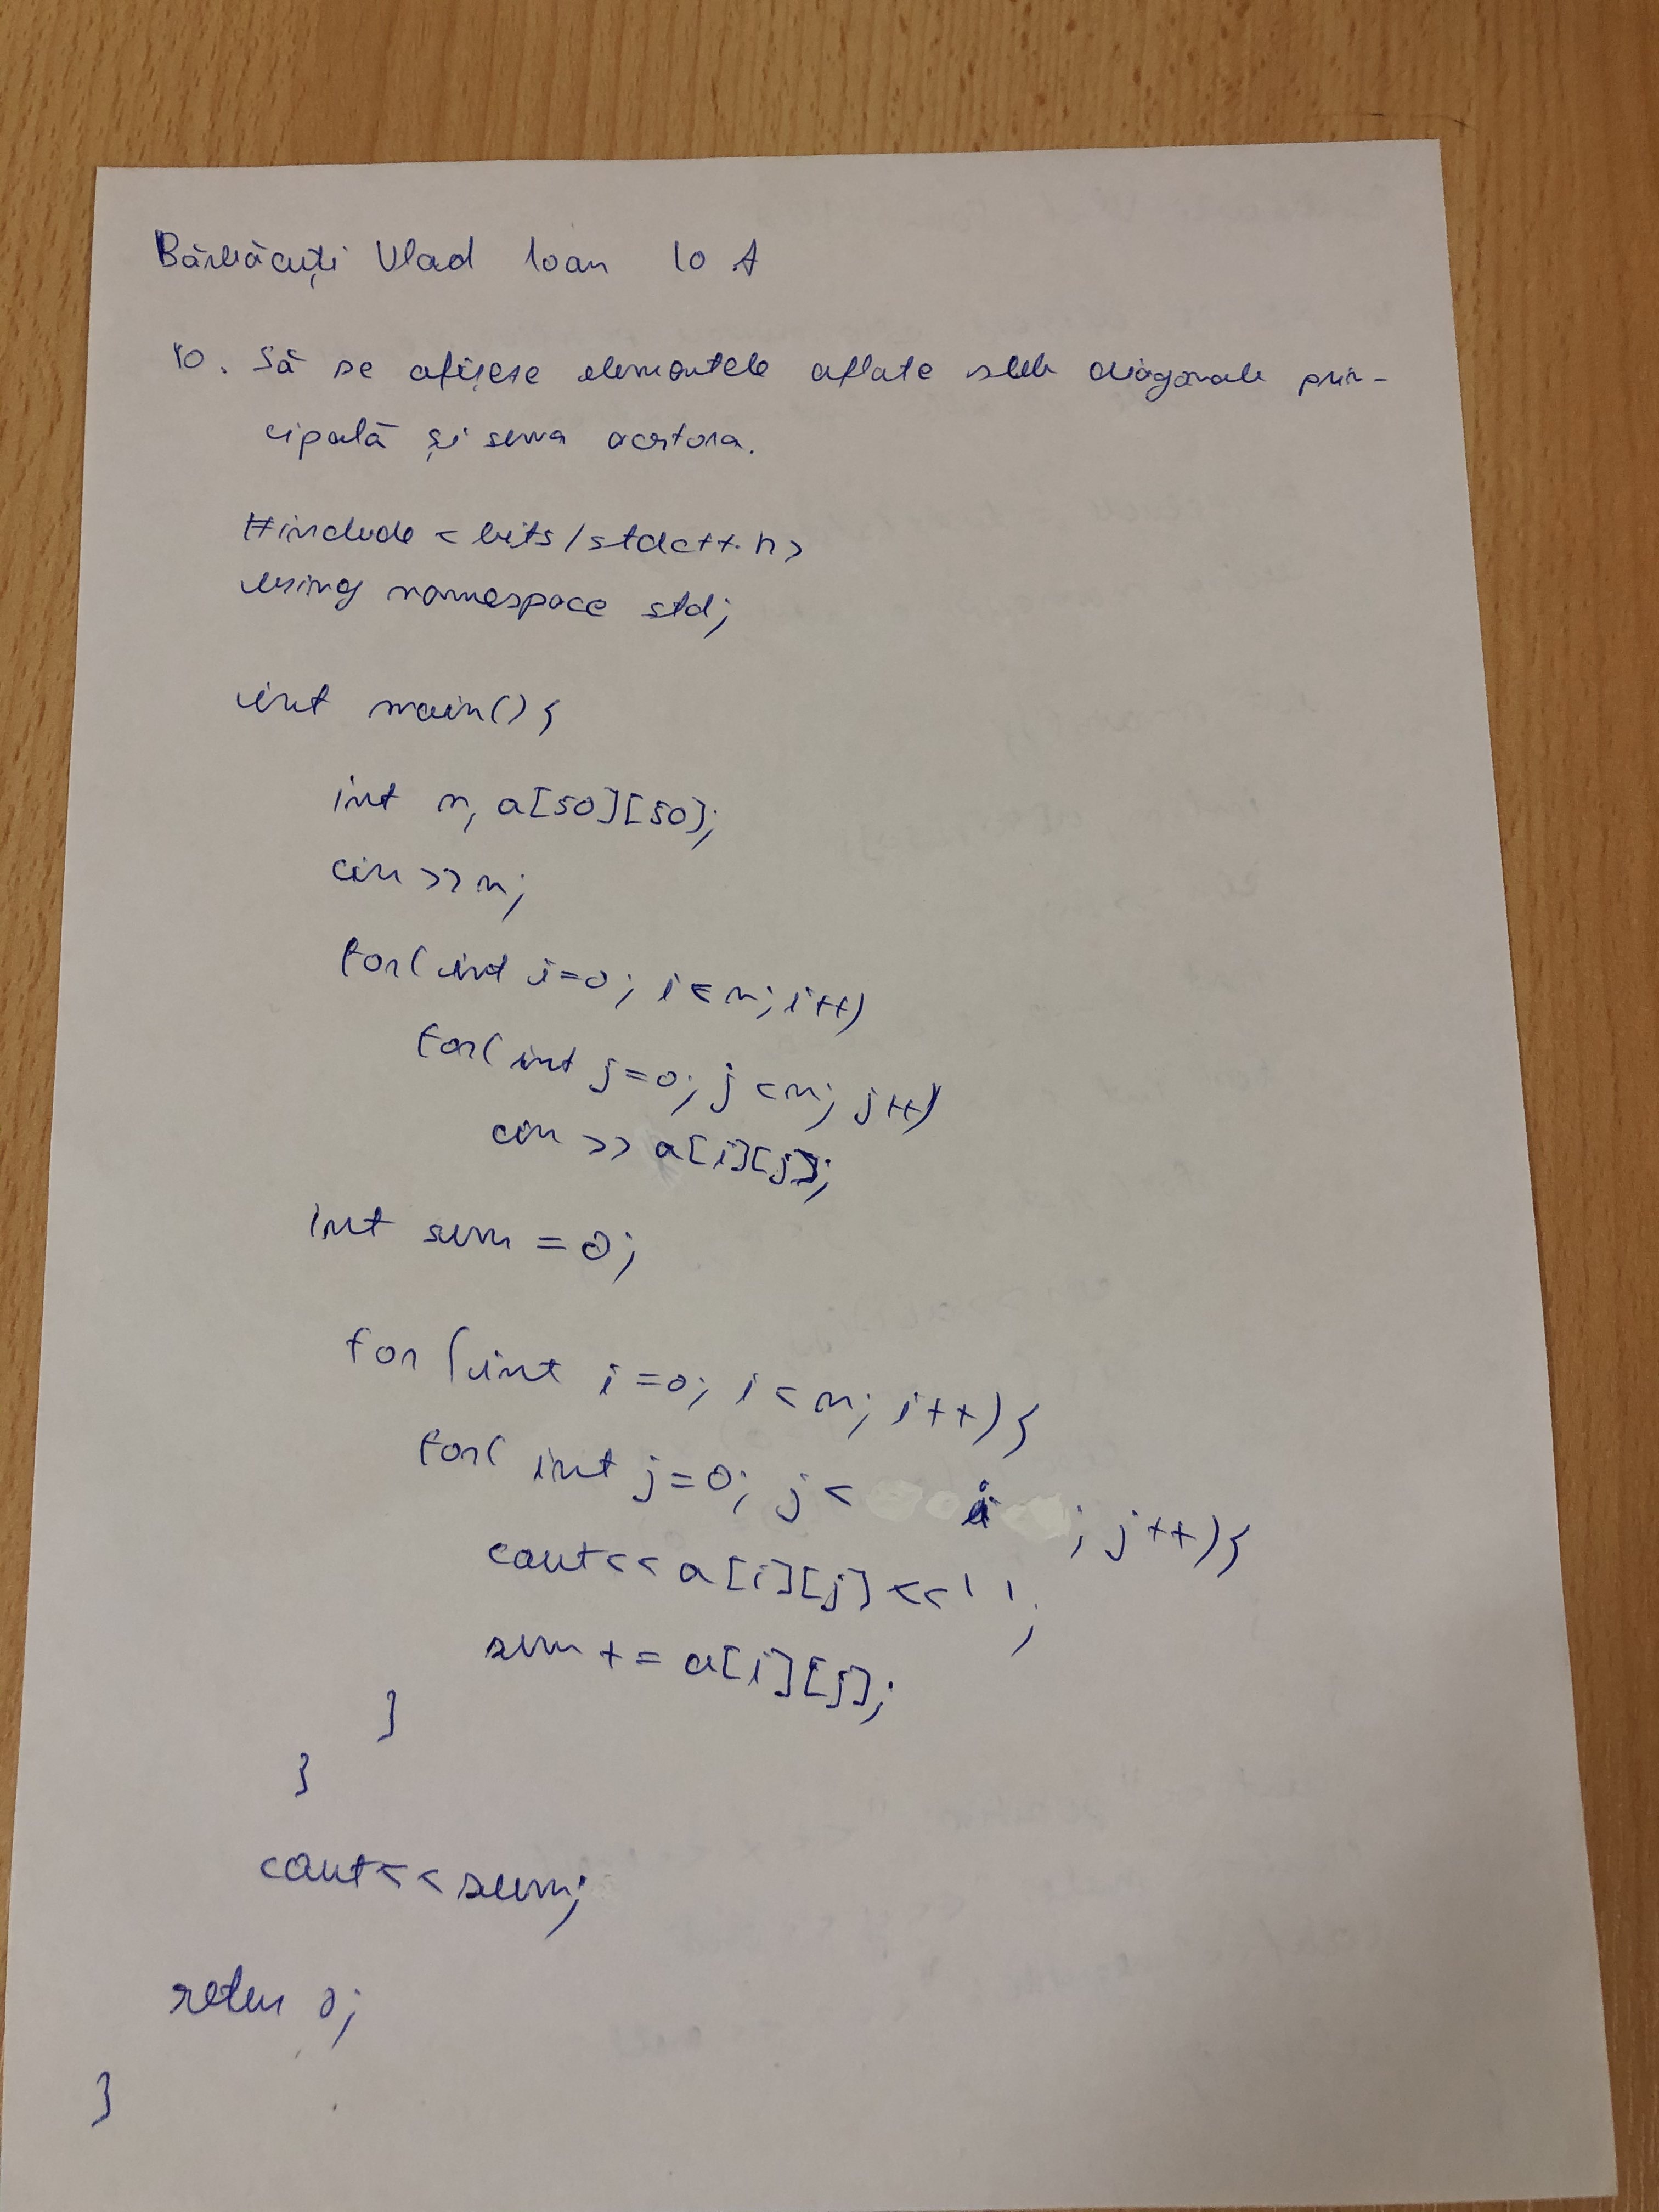 Bărbăcuți Vlad Ioan 10 A
10. Să se afișeze elementele aflate sub diagonala prin-
cipală și suma acestora.
#include <bits/stdc++.h>
using namespace std;
int main(){
int n, a[50][50];
cin >> n;
for(int i=0; i<n; i++)
for(int j=0; j<n; j++)
cin >> a[i][j];
int sum = 0;
for (int i=0; i<n; i++){
for( int j=0; j< i ; j++){
cout<< a[i][j] <<' ';
sum += a[i][j];
}
}
cout<< sum;
retur 0;
}